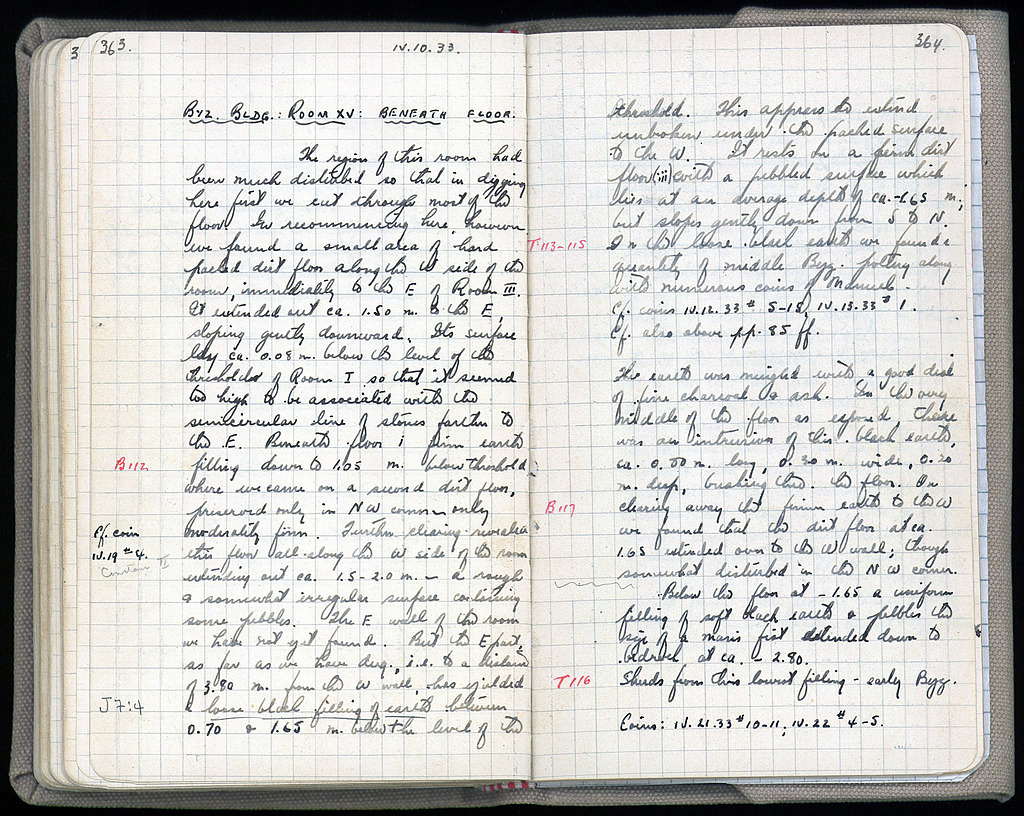 363.
IV.10.33.
BYZ. BLDG.: ROOM XV: BENEATH FLOOR.
The region of this room had
been much disturbed so that in digging
here first we cut through most of the
floor. In recommencing here, however
we found a small area of hard
packed dirt floor along the W side of the
room, immediately to the E of Room III.
It extended out ca. 1.50 m. to the E,
sloping gently downward. Its surface
lay ca. 0.08 m. below the level of the
thresholds of Room I so that it seemed
too high to be associated with the
semicircular line of stones farther to
the E. Beneath floor i firm earth
B112
filling down to 1.05 m. below threshold
where we came on a second dirt floor,
preserved only in NW corner only
Cf. coin
IV.19 #4.
moderately firm. Further clearing revealed
this floor all along the W side of the room
extending out ca. 1.5-2.0 m. - a rough
& somewhat irregular surface containing
some pebbles. The E wall of the room
we have not yet found. But the E part,
as far as we have dug, i.e. to a distance
of 3.80 m. from the W wall, has yielded
J7:4
a loose black filling of earth between
0.70 & 1.65 m. below the level of the
364.
threshold. This appears to extend
unbroken under the packed surface
to the W. It rests on a firm dirt
floor (iii) with a pebbled surface which
lies at an average depth of ca. -1.65 m;
but slopes gently down from S to N.
T113-115
In the loose black earth we found a
quantity of middle Byz. pottery along
with numerous coins of Manuel.
Cf. coins IV.12.33 # 5-15, IV.13.33 # 1.
Cf. also above pp. 85 ff.
The earth was mingled with a good deal
of fine charcoal & ash. In the very
middle of the floor as exposed there
was an intrusion of this black earth,
ca. 0.80 m. long, 0.30 m. wide, 0.20
m. deep, breaking thro. the floor. In
B117
clearing away the firmer earth to the W
we found that the dirt floor at ca.
1.65 extended over to the W wall; though
somewhat disturbed in the NW corner.
Below the floor at -1.65 a uniform
filling of soft black earth & pebbles the
size of a man's fist extended down to
bedrock at ca. - 2.80.
T116
Sherds from this lowest filling - early Byz.
Coins: IV.21.33 #10-11; IV.22 #4-5.